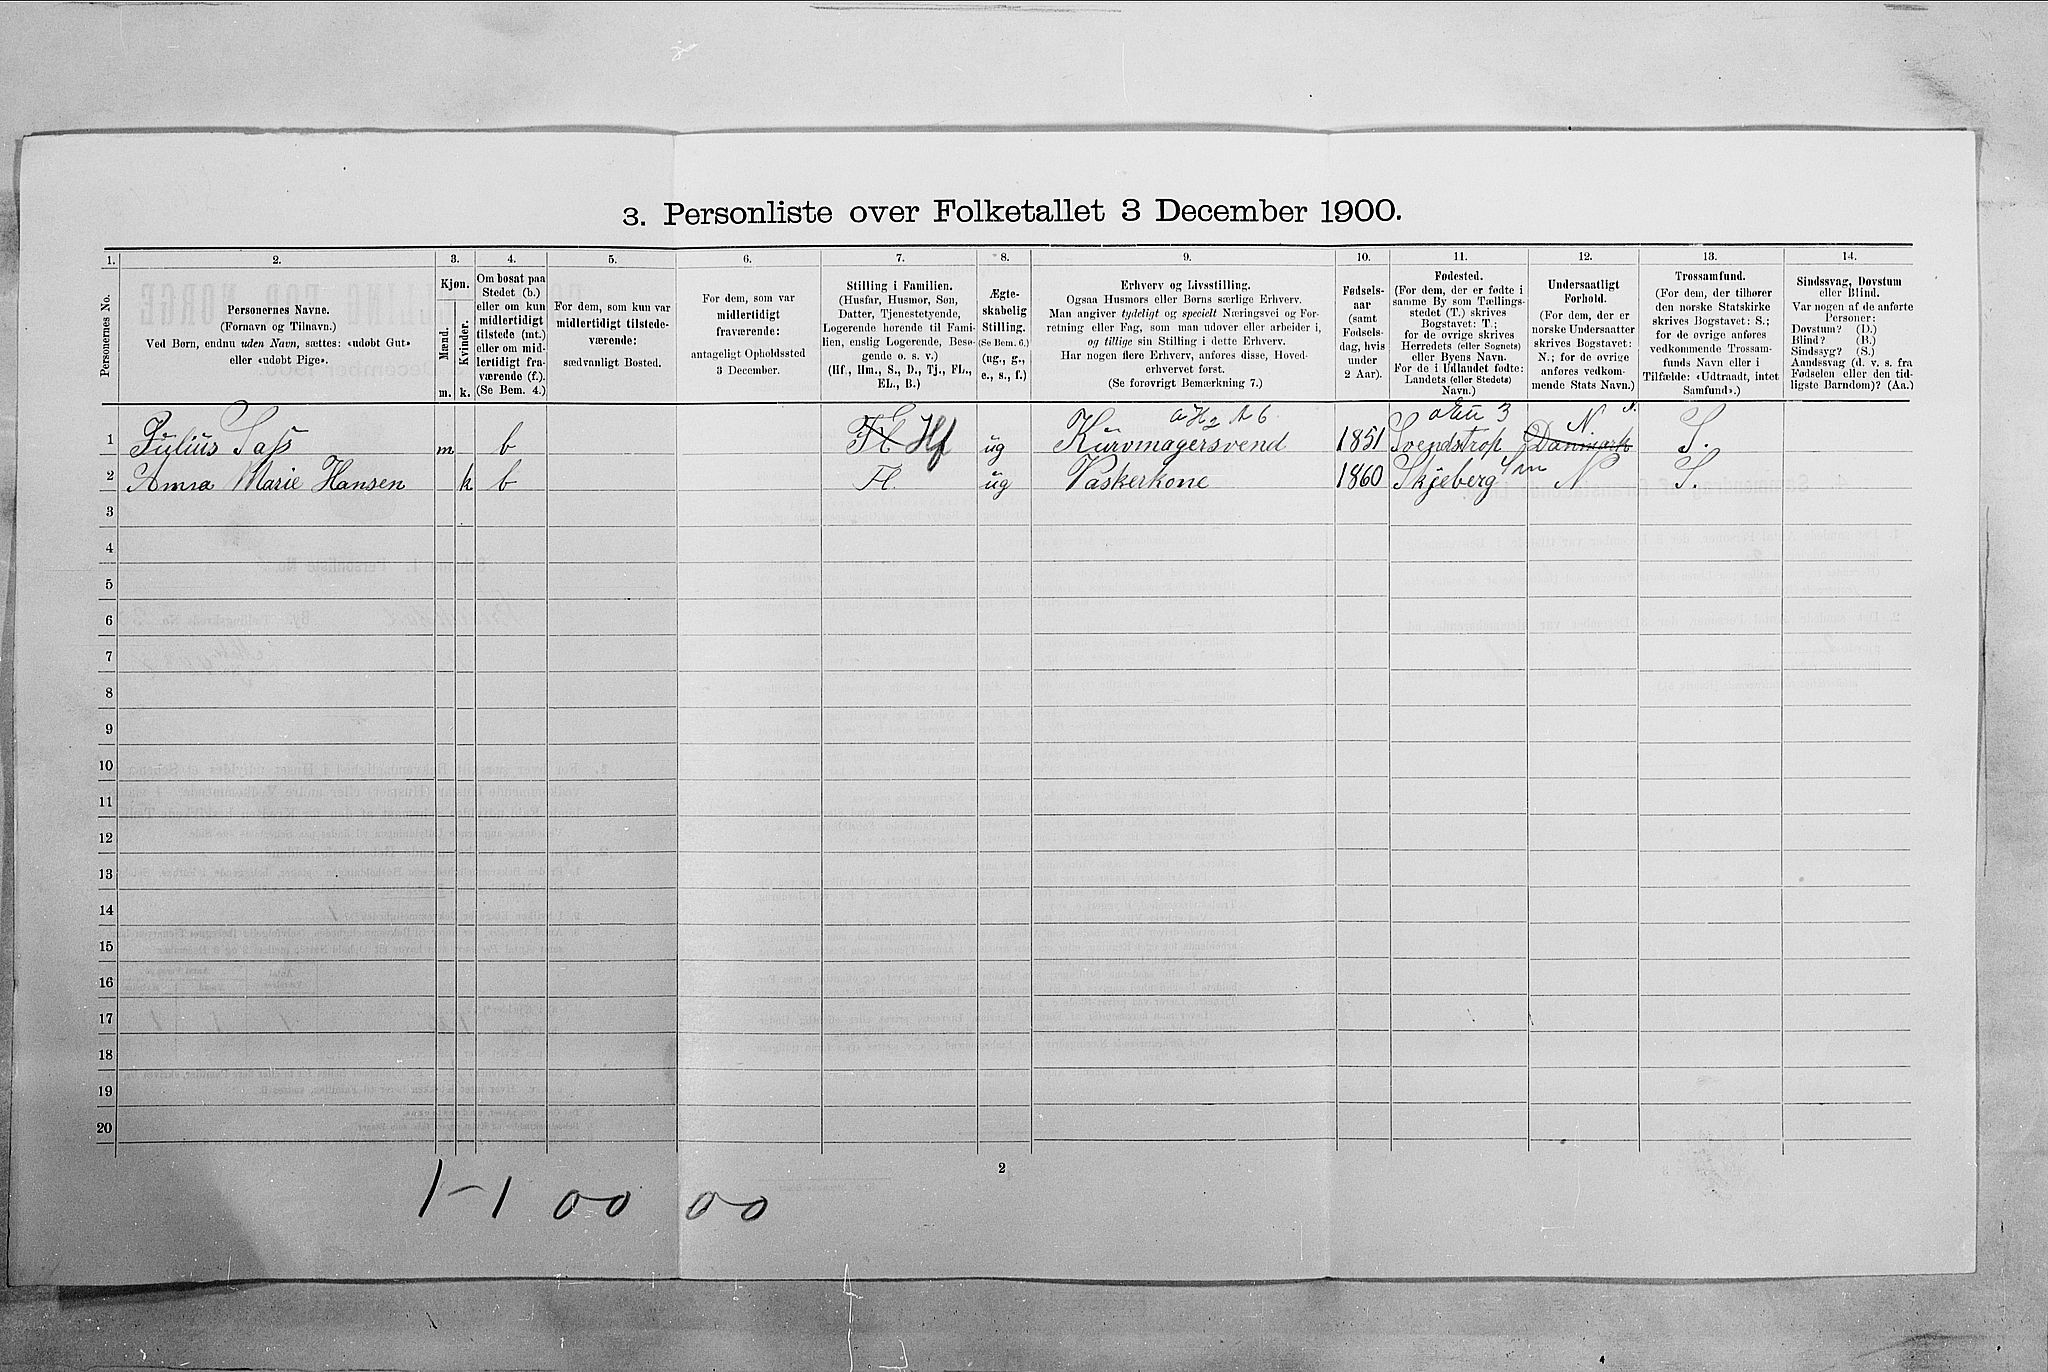 3. Personliste over Folketallet 3 December 1900.
1. 2. 3. 4. 5. 6. 7. 8. 9. 10. 11. 12. 13. 14.
Personernes No.
Personernes Navne.
(Fornavn og Tilnavn.)
Ved Børn, endnu uden Navn, sættes: «udøbt Gut»
eller «udøbt Pige».
Kjøn.
Mænd.
Kvinder.
m. k.
Om bosat paa
Stedet (b.)
eller om kun
midlertidigt
tilstede (mt.)
eller om mid-
lertidigt fra-
værende (f.).
(Se Bem. 4.)
For dem, som kun var
midlertidigt tilstede-
værende:
sædvanligt Bosted.
For dem, som var
midlertidigt
fraværende:
antageligt Opholdssted
3 December.
Stilling i Familien.
(Husfar, Husmor, Søn,
Datter, Tjenestetyende,
Logerende hørende til Fami-
lien, enslig Logerende, Besø-
gende o. s. v.)
(Hf., Hm., S., D., Tj., FL.,
EL., B.)
Ægte-
skabelig
Stilling.
(Se Bem. 6.)
(ug., g.,
e., s., f.)
Erhverv og Livsstilling.
Ogsaa Husmors eller Børns særlige Erhverv.
Man angiver tydeligt og specielt Næringsvei og For-
retning eller Fag, som man udøver eller arbeider i,
og tillige sin Stilling i dette Erhverv.
Har nogen flere Erhverv, anføres disse, Hoved-
erhvervet først.
(Se forøvrigt Bemærkning 7.)
Fødsels-
aar
(samt
Fødsels-
dag, hvis
under
2 Aar).
Fødested.
(For dem, der er fødte i
samme By som Tællings-
stedet (T.) skrives
Bogstavet: T.;
for de øvrige skrives
Herredets (eller Sognets)
eller Byens Navn.
For de i Udlandet fødte:
Landets (eller Stedets)
Navn.)
Undersaatligt
Forhold.
(For dem, der er
norske Undersaatter
skrives Bogstavet:
N.; for de øvrige
anføres vedkom-
mende Stats Navn.)
Trossamfund.
(For dem, der tilhører
den norske Statskirke
skrives Bogstavet: S.;
for de øvrige anføres
vedkommende Trossam-
funds Navn eller i
Tilfælde: «Udtraadt, intet
Samfund».)
Sindssvag, Døvstum
eller Blind.
Var nogen af de anførte
Personer:
Døvstum? (D.)
Blind? (B.)
Sindssyg? (S.)
Aandssvag (d. v. s. fra
Fødselen eller den tid-
ligste Barndom)? (Aa.)
1 Julius Sass m b Fl Hf ug Kurvmagersvend 1851 Svendstrop Danmark N S.
2 Anna Marie Hansen k b Fl. ug Vaskerkone 1860 Skjeberg N S.
3
4
5
6
7
8
9
10
11
12
13
14
15
16
17
18
19
20
2
1-1 00 00